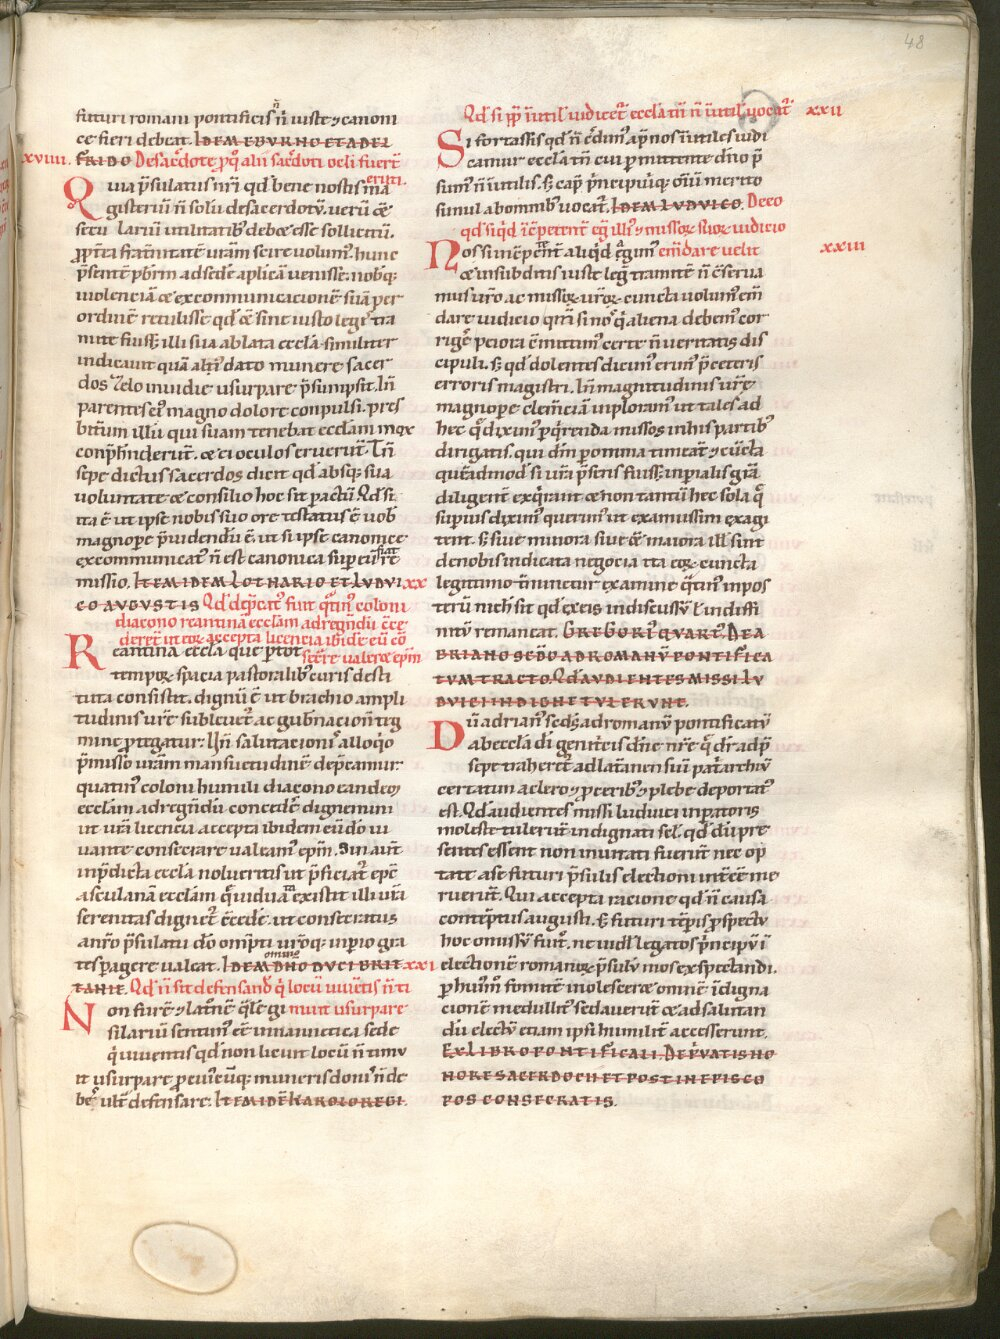 48
futuri romani pontificis n̄ iuste ⁊ canoni
ce fieri debeat. IDEM EBURNO ET ADEL
xviiii. FRIDO De sac̄dote ꝑ q̄ alii sac̄doti oc̄li fuer̄t
eruti.
Quia p̄sulatus nr̄i qd̄ bene nostis ma
gisteriū n̄ solū de sacerdotū. uerū & ̄
secu lariū utilitatib; debet esse sollicitū.
ꝓpt̄ea frat̄nitatē uram̄ scire uolum̄. hunc
p̄sentē pb̄rm ad sedē aplicā uenisse. nobq̄;
uiolenciā & excommunicacionē suā per
ordinē retulisse qd̄ & sine iusto legis tra
mite fiuss; illi sua ablata eccl̄a. similiter
indicauit quā alt̄i dato munere sacer
dos zelo inuidie usurpare p̄sumpsit. In̄
parentes ei; magno dolore conpulsi. pres
bit̄um illū qui suam tenebat eccl̄am mox
conp̄hinderūt. & ei oculos eruerūt. In̄
sepe dictus sacerdos dicit qd̄ absq; sua
uoluntate & consilio hoc sit pactū. Qd̄ si
ita ē ut ipse nobis suo ore testatus ē uob̄
magnope p̄uidendū ē. ut si ipse canonice
excommunicat; n̄ est canonica sup eū fiat
missio. ITEM IDEM LOTHARIO ET LUDVI xx
CO AUGUSTIS Qd̄ dep̄cat; fuit q̄tin; coloni
diacono reantinā eccl̄am ad regendū c̄ce
deret ut eor accepta licencia ibidē eū cō
secrare ualeret ep̄m
Reantina eccl̄a que p tot
tempor spacia pastoralib; curis desti
tuta consistit. dignū ē ut brachio ampli
tudinis ur̄e subleuet; ac gub̄nacionū teg
mine ꝓtegatur. Un̄ salutacioni; alloq̄io
p̄misso uram̄ mansuetudinē dep̄camur.
quatin; coloni humili diacono eandem
eccl̄am ad regendū concedē dignemini
ut ur̄a licencia accepta ibidem eū dō iu
uante consecrare ualeam; ep̄m. Sin aūt
inp̄dicta eccl̄a nolueritis ut p̄ficiat̄ ep̄c
asculanā eccl̄am q̄ uiduata existit illi ur̄a
serenitas dignet̄ c̄cedē. ut consecratus
anr̄o p̄sulatu dō om̄pti ur̄oq; inp̄io gra
tes pagere ualeat. IDEM DNO DUCI BRIT xxi
TANIE. Qd̄ n̄ sit defensand; q̄ locū uiuētis n̄ ti
muit usurpare
Non fur̄e ⁊ latnē q̄lē gi
silariū sentim; eē in nauietica sede
q̄ uiuentis qd̄ non licuit locū n̄ timu
it usurpare ꝑ eui cūq; muneris doni n̄ de
be; ult̄ defensare. ITEM IDĒ KAROLO REGI.
Qd̄ si pp̄ inutil; iudicet̄ eccl̄a tn̄ n̄ inutil; uocat̄ xxii
Si fortassis qd̄ n̄ c̄dim; apnos inutiles iudi
camur eccl̄a tn̄ cui ꝑmittente dn̄o p̄
sum; n̄ inutilis. s; cap̄ p̄ncipiūq; oīu merito
simul abomnib; uocat̄. IDEM LUDUICO. De eo
qd̄ siqd̄ īc̄petent̄ egit illi; ⁊ missor suor iudicio
em̄dare uelit xxiii
Nos si inc̄petent̄ aliq̄d egim;
& insubditis iuste leg; tramitē n̄ c̄serua
mus ur̄o ac missor ur̄or cuncta uolum; em̄
dare iudicio qm̄ si nos q̄ aliena debem; cor
rigē peiora c̄mitim; certe n̄ ueritatis dis
cipuli. s; qd̄ dolentes dicim; erim; p̄ceteris
erroris magistri. In̄ magnitudinis ur̄e
magnope clem̄ciā inploram; ut tales ad
hec q̄ dixim; pq̄renda missos inhis partib;
dirigatis. qui dm̄ p omnia timeat̄ ⁊ cūcta
quēadmod̄ si ur̄a p̄sens fiuss; inp̄ialis gr̄ia
diligent̄ exq̄rant & non tantū hec sola q̄
superius dixim; querim; ut examussim exagi
tent. s; siue minora siue ē maiora illi sint
denobis indicata negocia ita eor cuncta
legitimo t̄minent̄ examine q̄tin; inpos
terū nichil sit qd̄ exeis indiscussū l̄ indiffi
nitū remaneat. GREGORI QUART. DE A
DRIANO SEDO AD ROMANŪ PONTIFICA
TUM TRACTO. QD AUDIENTES MISSI LU
DUICI INDIGNE TULERUNT.
Dū adrian; scds; adromanū pontificatū
ab eccl̄a di genit̄cis dn̄e nr̄e q̄ dr̄ adp̄
sepe traheret̄ ad lat̄anensiū pat̄archiū
certatim aclero ⁊ ꝓcerib; ⁊ plebe deportat̄
est. Qd̄ audientes missi luduici inpatoris
moleste tulerūt indignati scil; qd̄ dū pre
sentes essent non inuitati fuerūt nec op̄
tate a se futuri p̄sulis electioni int̄ēē me
ruerūt. Qui accepta racione qd̄ n̄ causa
contēptus augusti. s; futuri tēpis ꝓspectu
hoc omissū fuit̄. ne uidl̄ legatos p̄ncipū ī
electionē romanor p̄sulū mos exspectandi.
p huim; fomitē inolesceret omnē īdigna
cionē medullit; sedauerūt & ad salutan
dū electū etiam ipsi humilit̄ accesserunt.
EX LIBRO PONTIFICALI. DE PRIVATIS HO
NORE SACERDOCII ET POST IN EPISCO
POS CONSECRATIS.